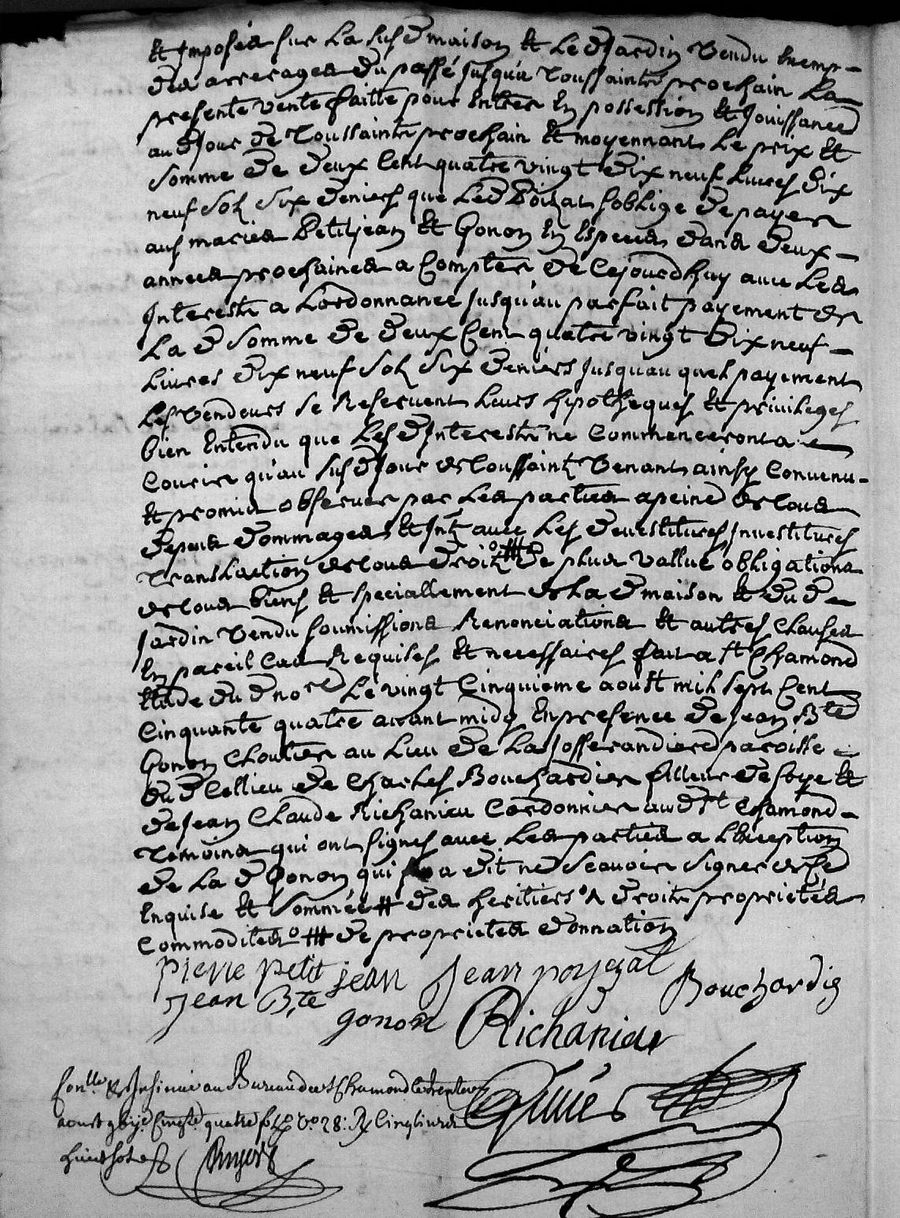 & Imposés sur La susd maison & Led Jardin vendu Exemp-
des arrerages du passé jusqu'a Toussaints prochain La
presente vente faitte pour Entrer En possession & Jouissance
aud Jour de Toussaints prochain & moyennant Le prix &
somme de deux Cent quatre vingt dix neuf livres dix
neuf sols six deniers que Led s'oblige de payer
aus maries Petitjean & Gonon En Especes dans deux
années prochaines a Compter de Cejourdhuy avec Les
Interests a L'ordonnance Jusqu'au parfait payement de
La d somme de deux Cent quatre vingt dix neuf
Livres dix neuf sols six deniers Jusqu'au quel payement
Les vendeurs se Reservent Leurs hipotheques & privileges
bien Entendu que Lesd Interests ne Commenceront a
Courir qu'au susd Jour de Toussaints venant ainsy Convenu
& promis observer par Les parties a peine de tous
depens dommages & Intts avec Les devestitures Investitures
Translation de tous droits de plus vallue obligations
de tous biens & speciallement de La d maison & dud
Jardin vendu soumissions Renonciations & autres Clauses
En pareil Cas Requises & necessaires fait a St Chamond
Etude dud nore Le vingt Cinquieme aoust mil sept Cent
Cinquante quatre avant midy En presence de Jean Bte
Gonon Cloutier au Lieu de La Jofferandiere paroisse
dud Cellieu de Charles Bouchardier filleur de soye &
de Jean Claude Richanieu Cordonnier aud St Chamond
Temoins qui ont signes avec Les parties a L'Exception
de La d Gonon qui a dit ne scavoir signer de ce
Enquise & sommée # des heritiers & droits proprietés
Commodités # de proprietes donnation
Pierre Petit jean Jean
Jean Bte gonon Bouchardie
Richanieu
Conlle & Insinué au Bureau de St Chamond le trente
aoust Cinqte quatre fo vo 28: R Cinq livres
huit sols